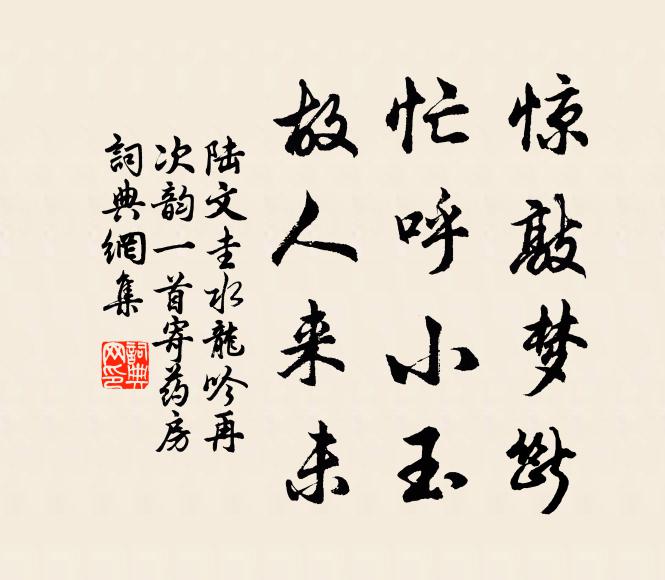 惊敲梦断
忙呼小玉
故人来未
陆文圭水龙吟再
次韵一首寄药房
詞典網集
詞典
网印